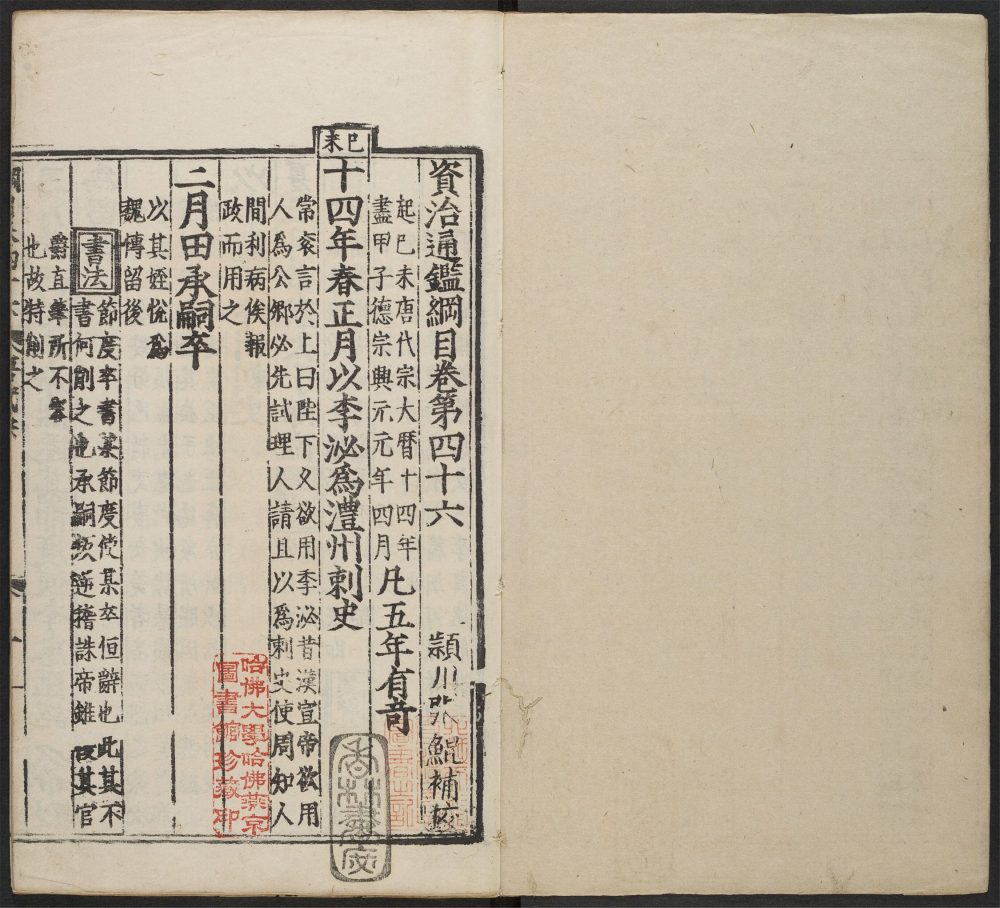 資治通鑑綱目卷第四十六
頴川 鯤補
起巳未唐代宗大曆十四年
盡甲子德宗興元元年四月
凡五年有奇
巳未
十四年春正月以李泌爲澧州刺史
常衮言於上曰陛下久欲用李泌昔漢宣帝欲用
人爲公卿必先試理人請且以爲刺史使周知人
間利病俟報
政而用之
二月田承嗣卒
以其姪悅爲
魏傳留後
書法
節度卒書某節度使某卒恒辭也此其不
書何創之也承嗣叛逆稽誅帝雖 其官
爵直筆所不容
也故特創之
哈佛大學哈佛燕京
圖書館珍藏印